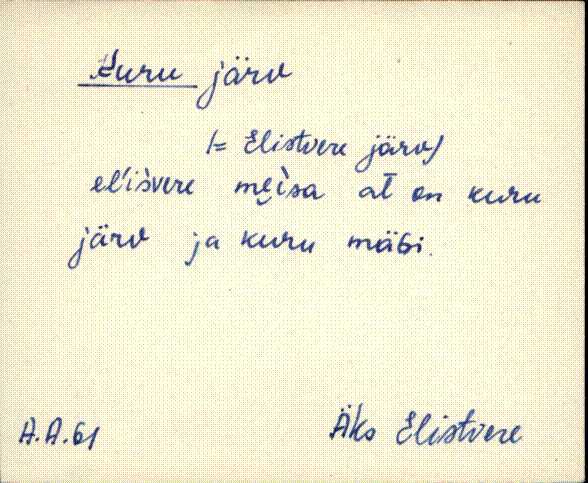 Kuru järv
/= Elistvere järv/
el'ìsvere mẹìsa al̄ on kuru
järv ja kuru mäGi.
A.A.61
Äks Elistvere